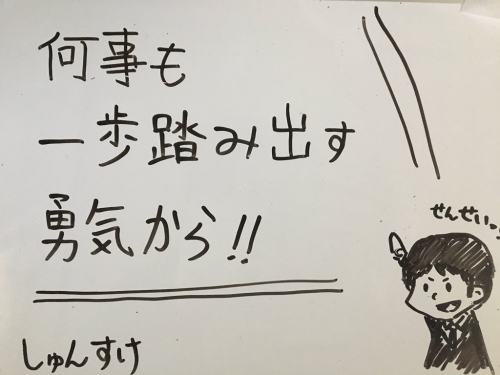 何事も
一歩踏み出す
勇気から!!
せんせいっ!
しゅんすけ